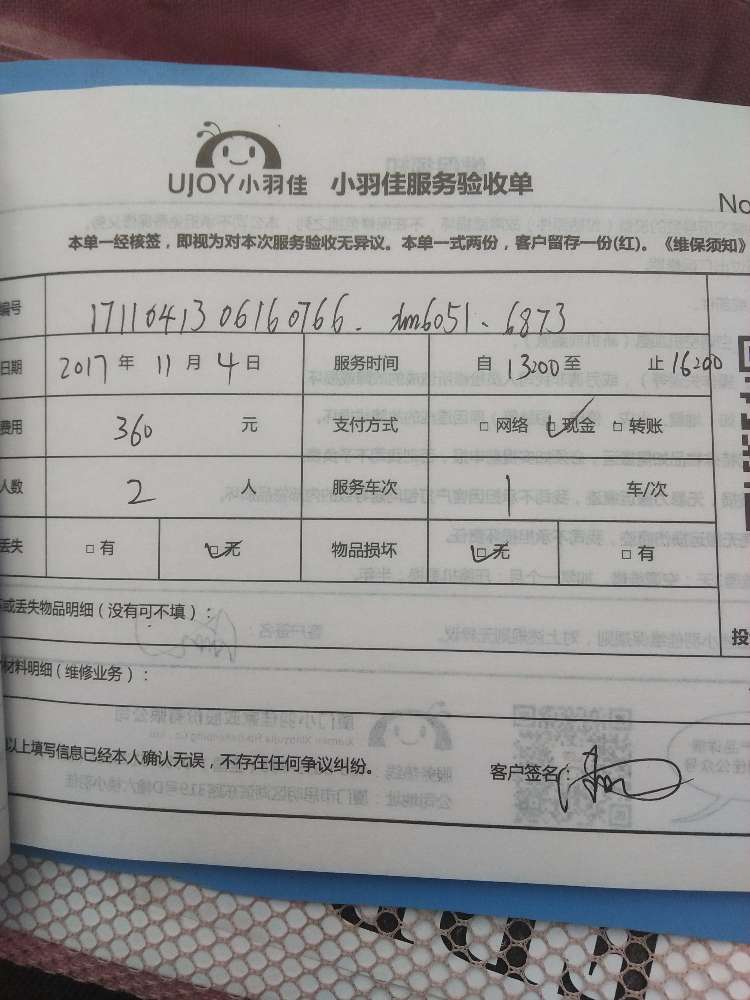 UJOY小羽佳 小羽佳服务验收单
No
本单一经核签，即视为对本次服务验收无异议。本单一式两份，客户留存一份(红)。《维保须知》
编号 1711041306160766. xm6051.6873
日期 2017 年 11 月 4 日 服务时间 自 13200 至 止 16200
费用 360 元 支付方式 □ 网络 ☑ 现金 □ 转账
人数 2 人 服务车次 1 车/次
丢失 □ 有 ☑ 无 物品损坏 ☑ 无 □ 有
或丢失物品明细（没有可不填）：
材料明细（维修业务）：
投
以上填写信息已经本人确认无误，不存在任何争议纠纷。 客户签名：